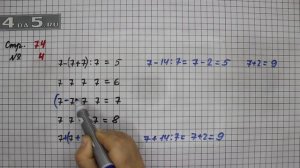 4DA5.RU
Стр. 74
№ 4
7-(7+7):7 = 5
7-14:7 = 7-2=5
7+2=9
7 7 7 7 = 6
(7-7+7 7 = 7
7 7 7 = 8
7+(7+ = 9
7+14:7= 7+2=9